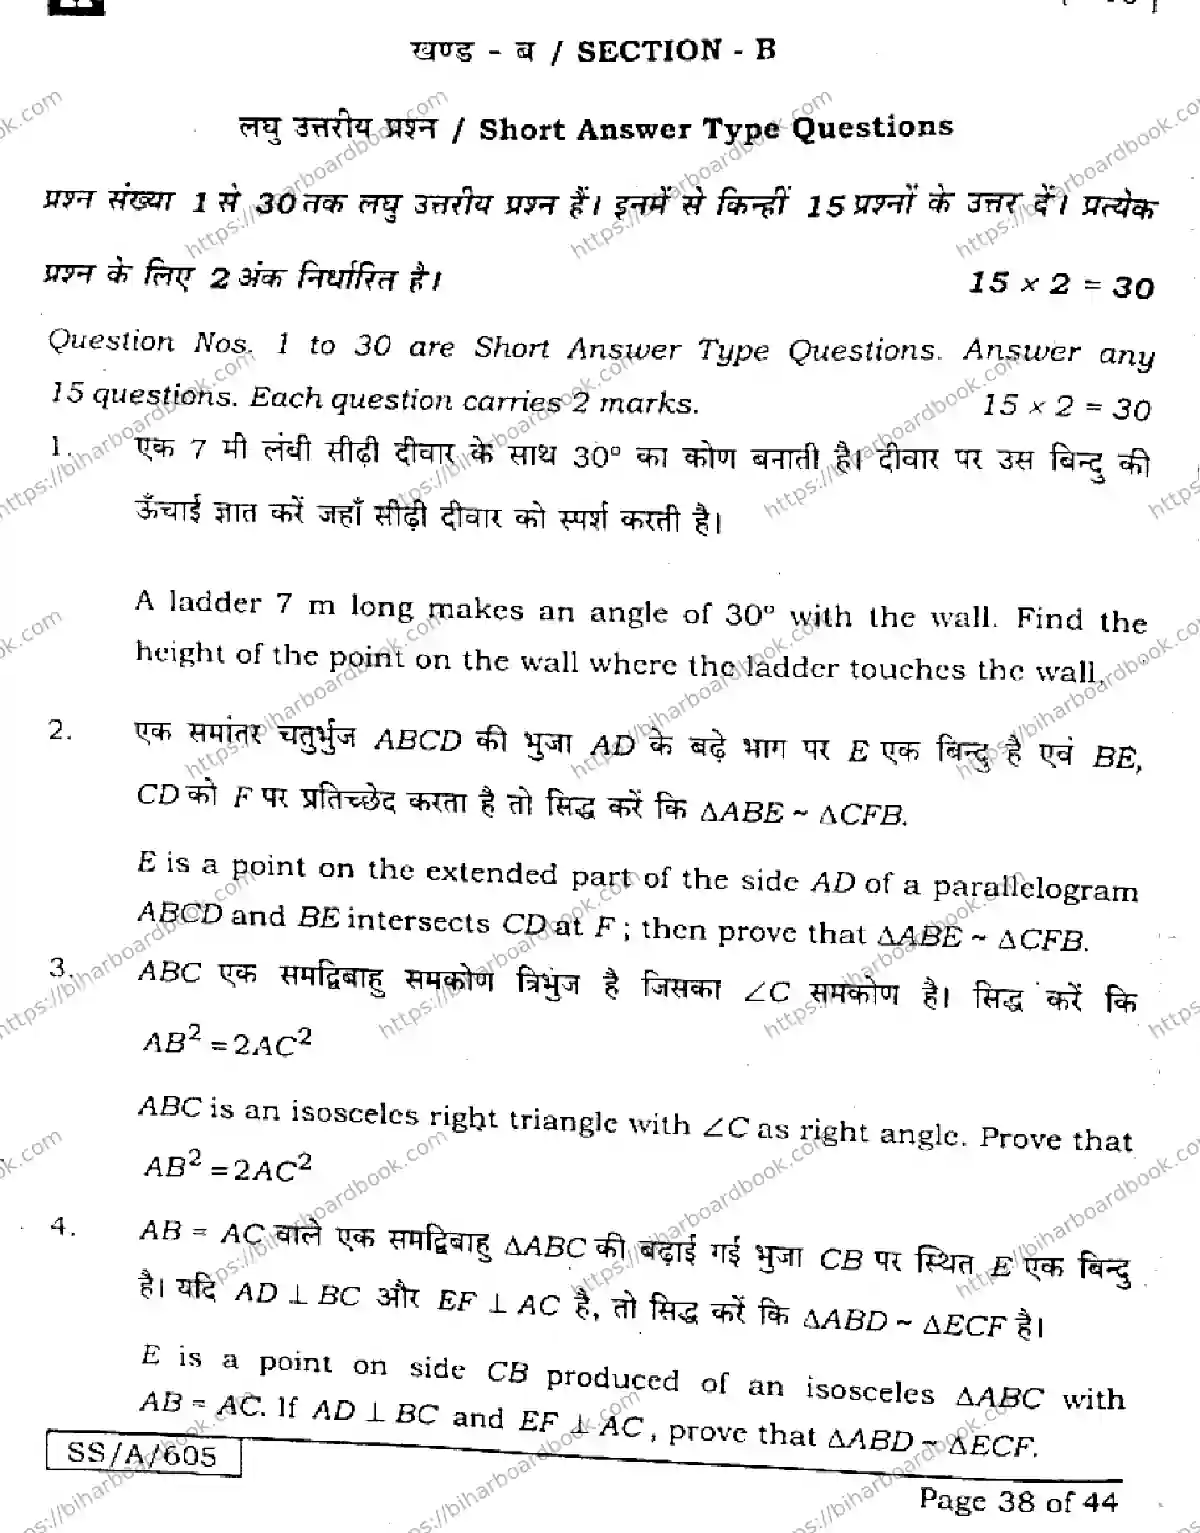 खण्ड - ब / SECTION - B
लघु उत्तरीय प्रश्न / Short Answer Type Questions
प्रश्न संख्या 1 से 30 तक लघु उत्तरीय प्रश्न हैं। इनमें से किन्हीं 15 प्रश्नों के उत्तर दें। प्रत्येक
प्रश्न के लिए 2 अंक निर्धारित है। 15 × 2 = 30
Question Nos. 1 to 30 are Short Answer Type Questions. Answer any
15 questions. Each question carries 2 marks. 15 × 2 = 30
1. एक 7 मी लंबी सीढ़ी दीवार के साथ 30° का कोण बनाती है। दीवार पर उस बिन्दु की
ऊँचाई ज्ञात करें जहाँ सीढ़ी दीवार को स्पर्श करती है।
A ladder 7 m long makes an angle of 30° with the wall. Find the
height of the point on the wall where the ladder touches the wall.
2. एक समांतर चतुर्भुज ABCD की भुजा AD के बढ़े भाग पर E एक बिन्दु है एवं BE,
CD को F पर प्रतिच्छेद करता है तो सिद्ध करें कि ΔABE ~ ΔCFB.
E is a point on the extended part of the side AD of a parallelogram
ABCD and BE intersects CD at F ; then prove that ΔABE ~ ΔCFB.
3. ABC एक समद्विबाहु समकोण त्रिभुज है जिसका ∠C समकोण है। सिद्ध करें कि
AB² = 2AC²
ABC is an isosceles right triangle with ∠C as right angle. Prove that
AB² = 2AC²
4. AB = AC वाले एक समद्विबाहु ΔABC की बढ़ाई गई भुजा CB पर स्थित E एक बिन्दु
है। यदि AD ⊥ BC और EF ⊥ AC है, तो सिद्ध करें कि ΔABD ~ ΔECF है।
E is a point on side CB produced of an isosceles ΔABC with
AB = AC. If AD ⊥ BC and EF ⊥ AC, prove that ΔABD ~ ΔECF.
SS/A/605
Page 38 of 44
https://biharboardbook.com